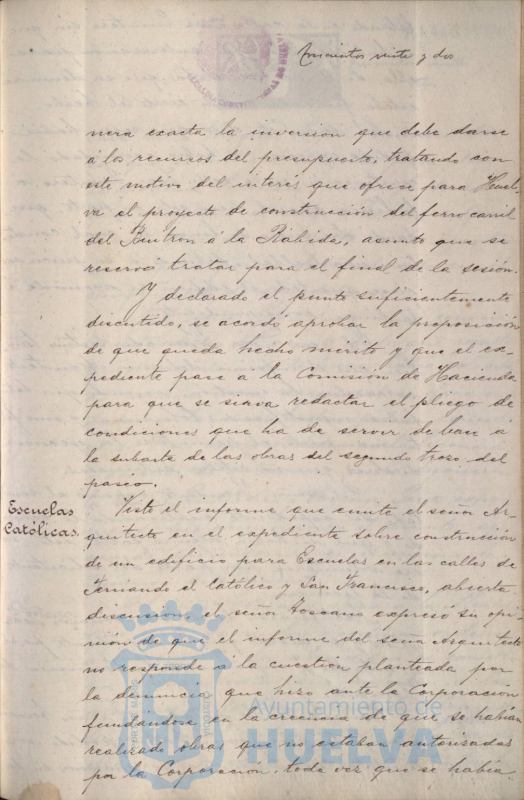 Trescientos veinte y dos
nera exacta la inversion que debe darse
á los recursos del presupuesto, tratando con
este motivo del interes que ofrece para Huel-
va el proyecto de construcción del ferrocarril
del Buitron á la Rábida, asunto que se
reservó tratar para el final de la sesión.
Y declarado el punto suficientemente
discutido, se acordó aprobar la proposición
de que queda hecho mérito y que el ex-
pediente pase á la Comisión de Hacienda
para que se sirva redactar el pliego de
condiciones que ha de servir de base á
la subasta de las obras del segundo trozo del
paseo.
Escuelas
Católicas.
Visto el informe que emite el señor Ar-
quitecto en el expediente sobre construcción
de un edificio para Escuelas en las calles de
Fernando el Católico y San Francisco, abierta
discusión, el señor Toscano expresó su opi-
nión de que el informe del señor Arquitecto
no responde á la cuestión planteada por
la denuncia que hizo ante la Corporación
fundandose en la creencia de que se habian
realizado obras que no estaban autorizadas
por la Corporación, toda vez que se habia
Ayuntamiento de
HUELVA